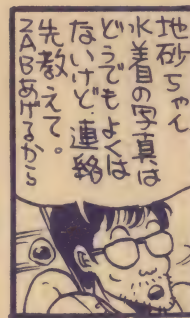 地砂ちゃん
水着の写真は
どうでもよくは
ないけど連絡
先教えて。
2ABあげるから